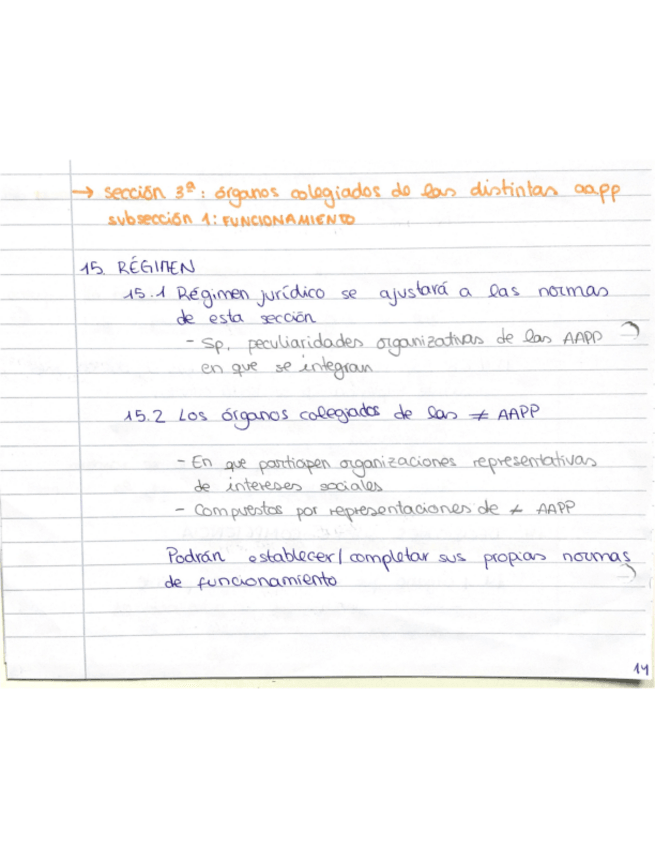 → sección 3ª: órganos colegiados de las distintas aapp
subsección 1: FUNCIONAMIENTO
15. RÉGIMEN
15.1 Régimen jurídico se ajustará a las normas
de esta sección
- Sp. peculiaridades organizativas de las AAPP
en que se integran
15.2 Los órganos colegiados de las ≠ AAPP
- En que participen organizaciones representativas
de intereses sociales
- Compuestos por representaciones de ≠ AAPP
Podrán establecer/completar sus propias normas
de funcionamiento
14